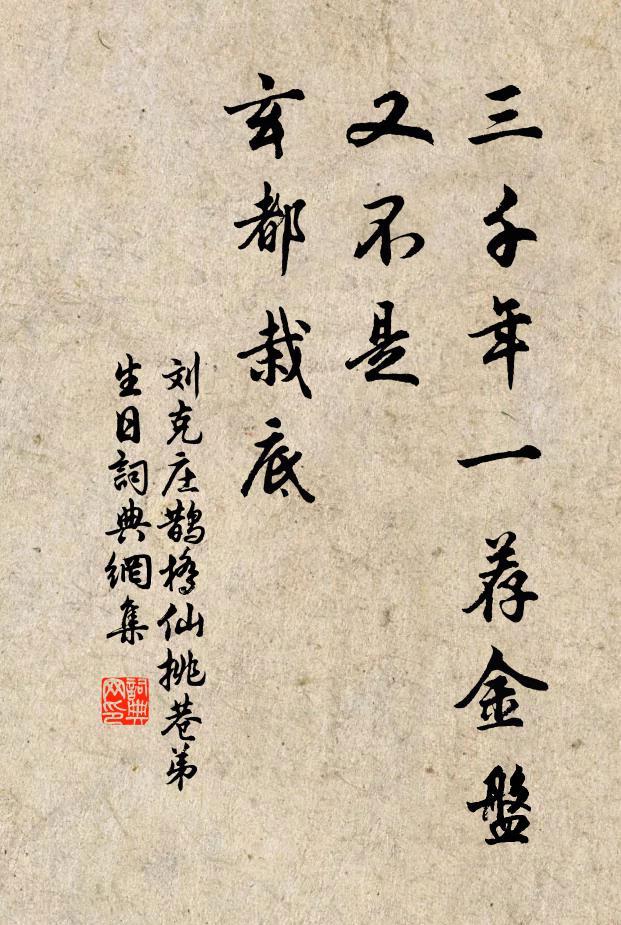 三千年一荐金盤
又不是
玄都栽底
刘克庄鹊橋仙挑巷弟
生日詞典網集
詞典
网印